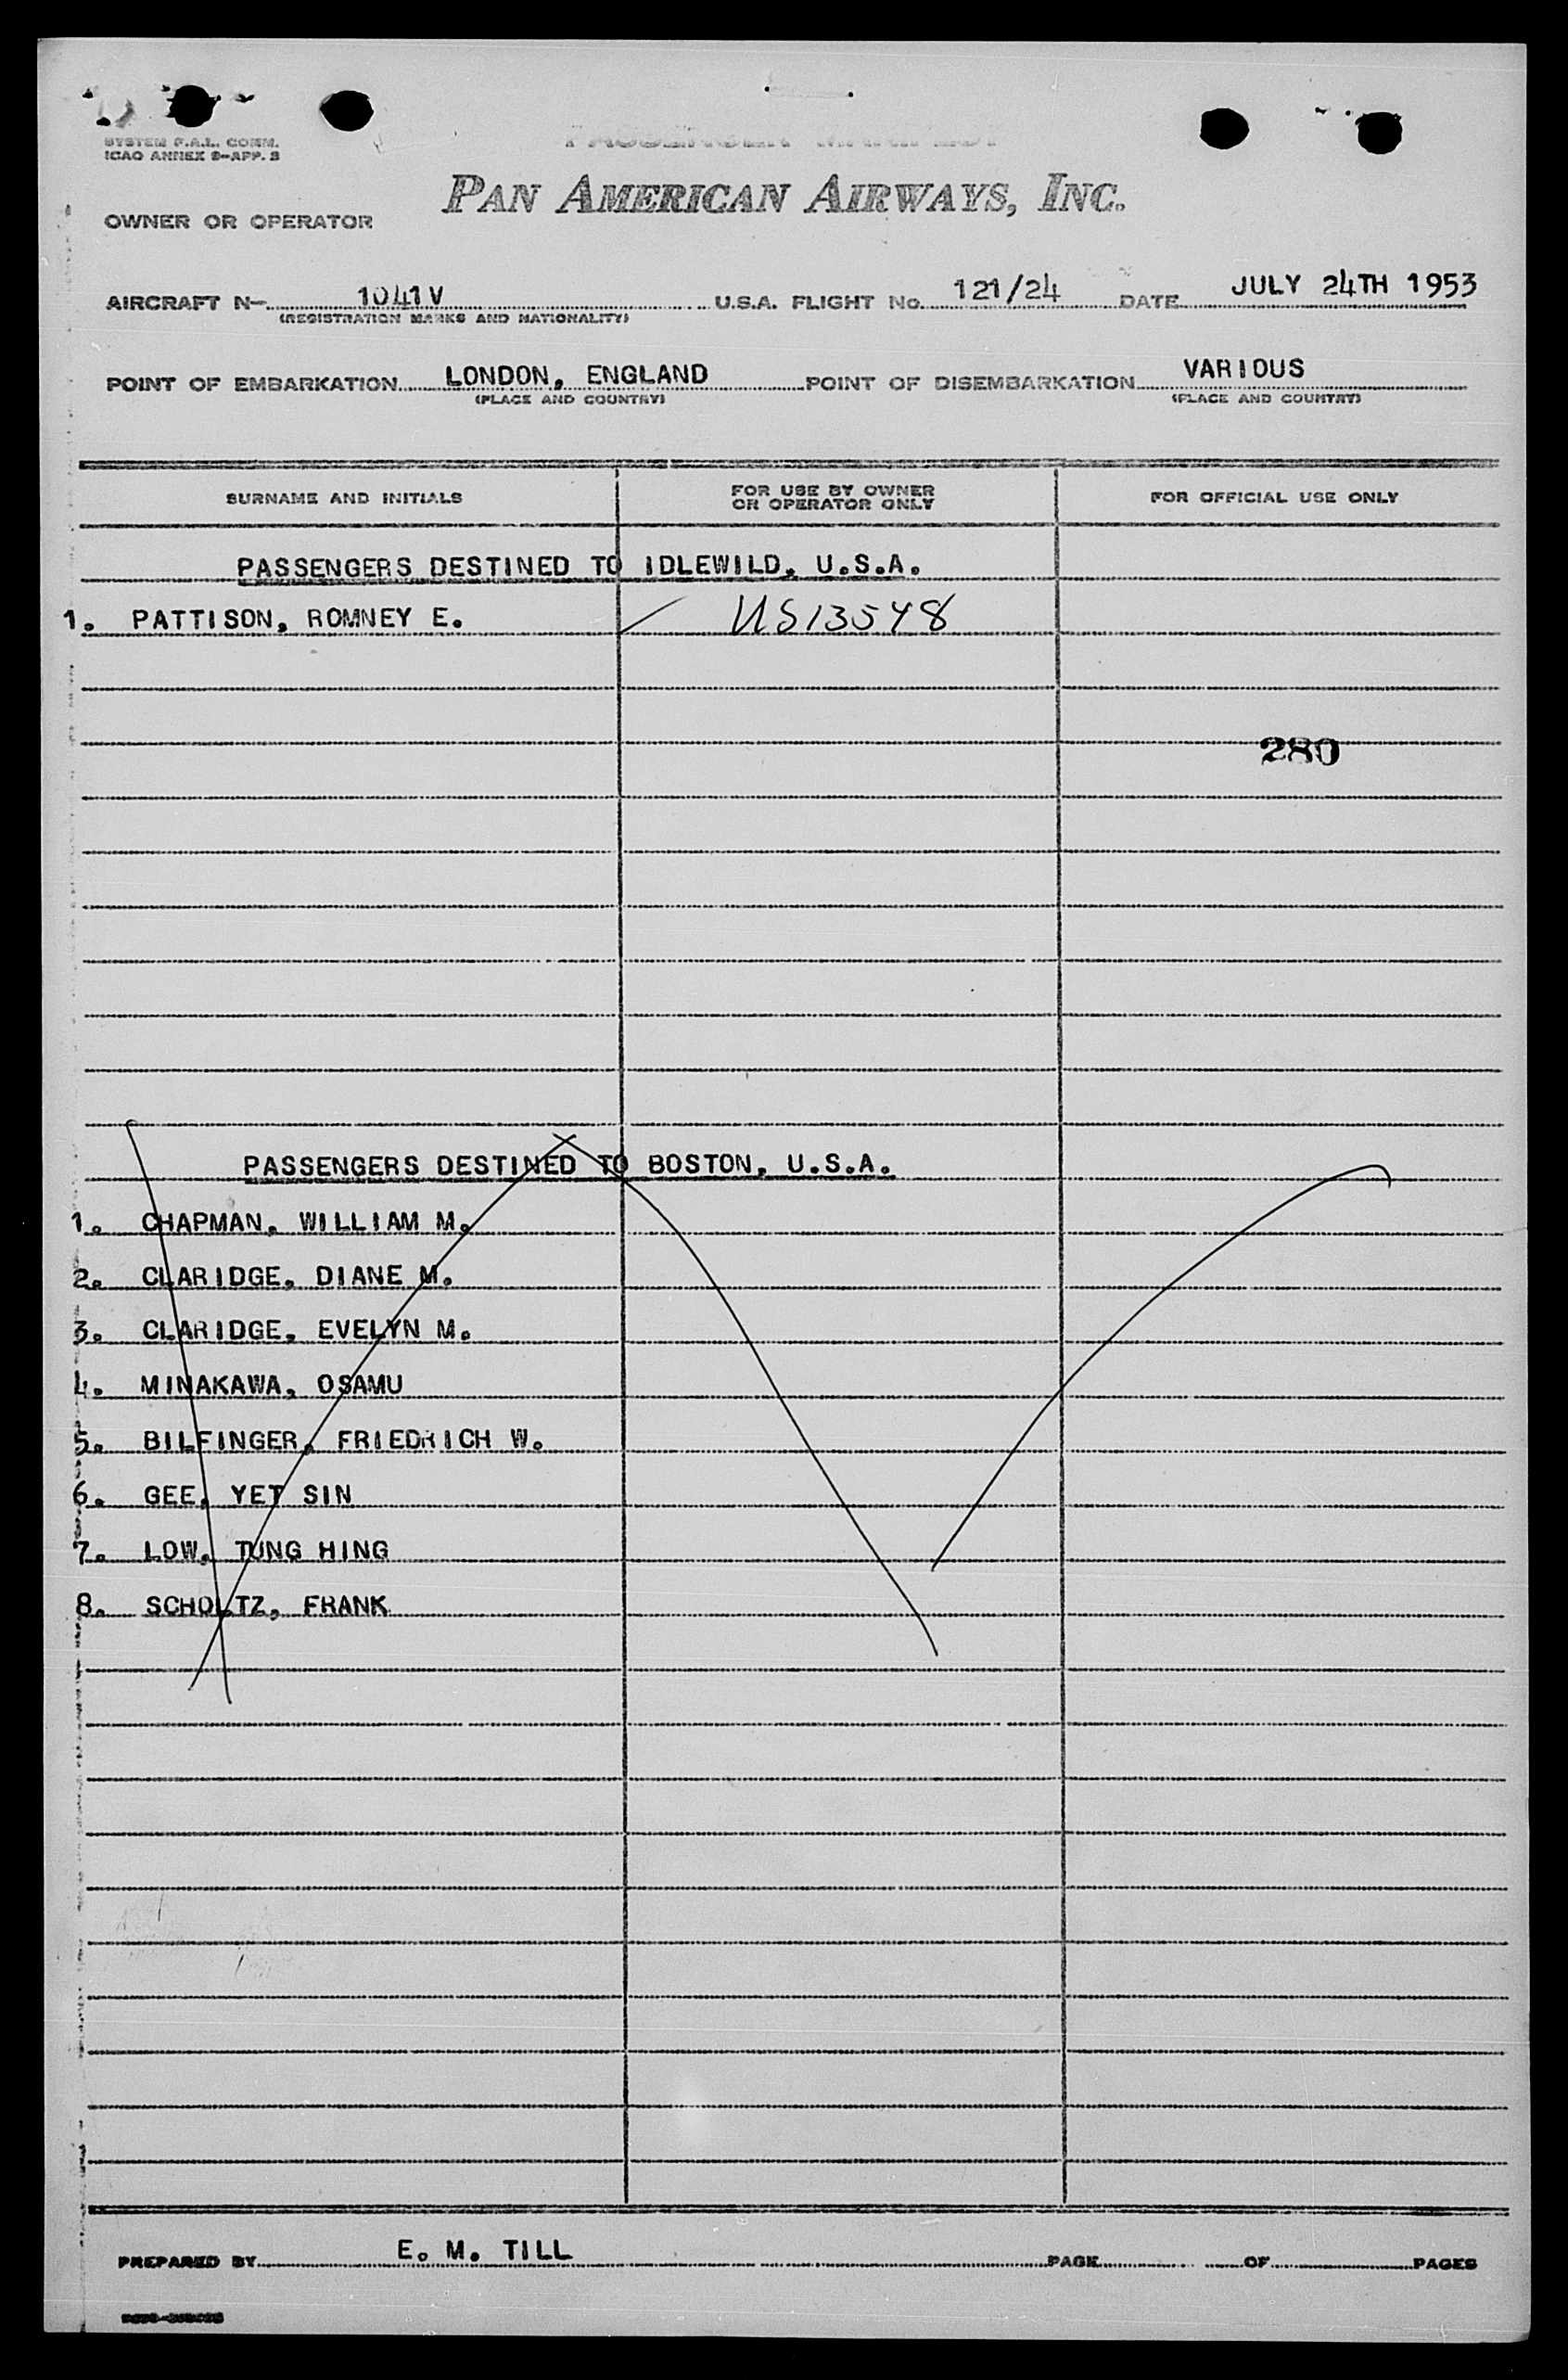 SYSTEM F.A.L. COMM.
ICAO ANNEX 9-APP. 3
PASSENGER MANIFEST
PAN AMERICAN AIRWAYS, INC.
OWNER OR OPERATOR
AIRCRAFT N- 1041V U.S.A. FLIGHT No. 121/24 DATE JULY 24TH 1953
(REGISTRATION MARKS AND NATIONALITY)
POINT OF EMBARKATION LONDON, ENGLAND POINT OF DISEMBARKATION VARIOUS
(PLACE AND COUNTRY) (PLACE AND COUNTRY)
SURNAME AND INITIALS FOR USE BY OWNER OR OPERATOR ONLY FOR OFFICIAL USE ONLY
PASSENGERS DESTINED TO IDLEWILD, U.S.A.
1. PATTISON, ROMNEY E. US13548
280
PASSENGERS DESTINED TO BOSTON, U.S.A.
1. CHAPMAN, WILLIAM M.
2. CLARIDGE, DIANE M.
3. CLARIDGE, EVELYN M.
4. MINAKAWA, OSAMU
5. BILFINGER, FRIEDRICH W.
6. GEE, YET SIN
7. LOW, TUNG HING
8. SCHOLTZ, FRANK
PREPARED BY E. M. TILL PAGE OF PAGES